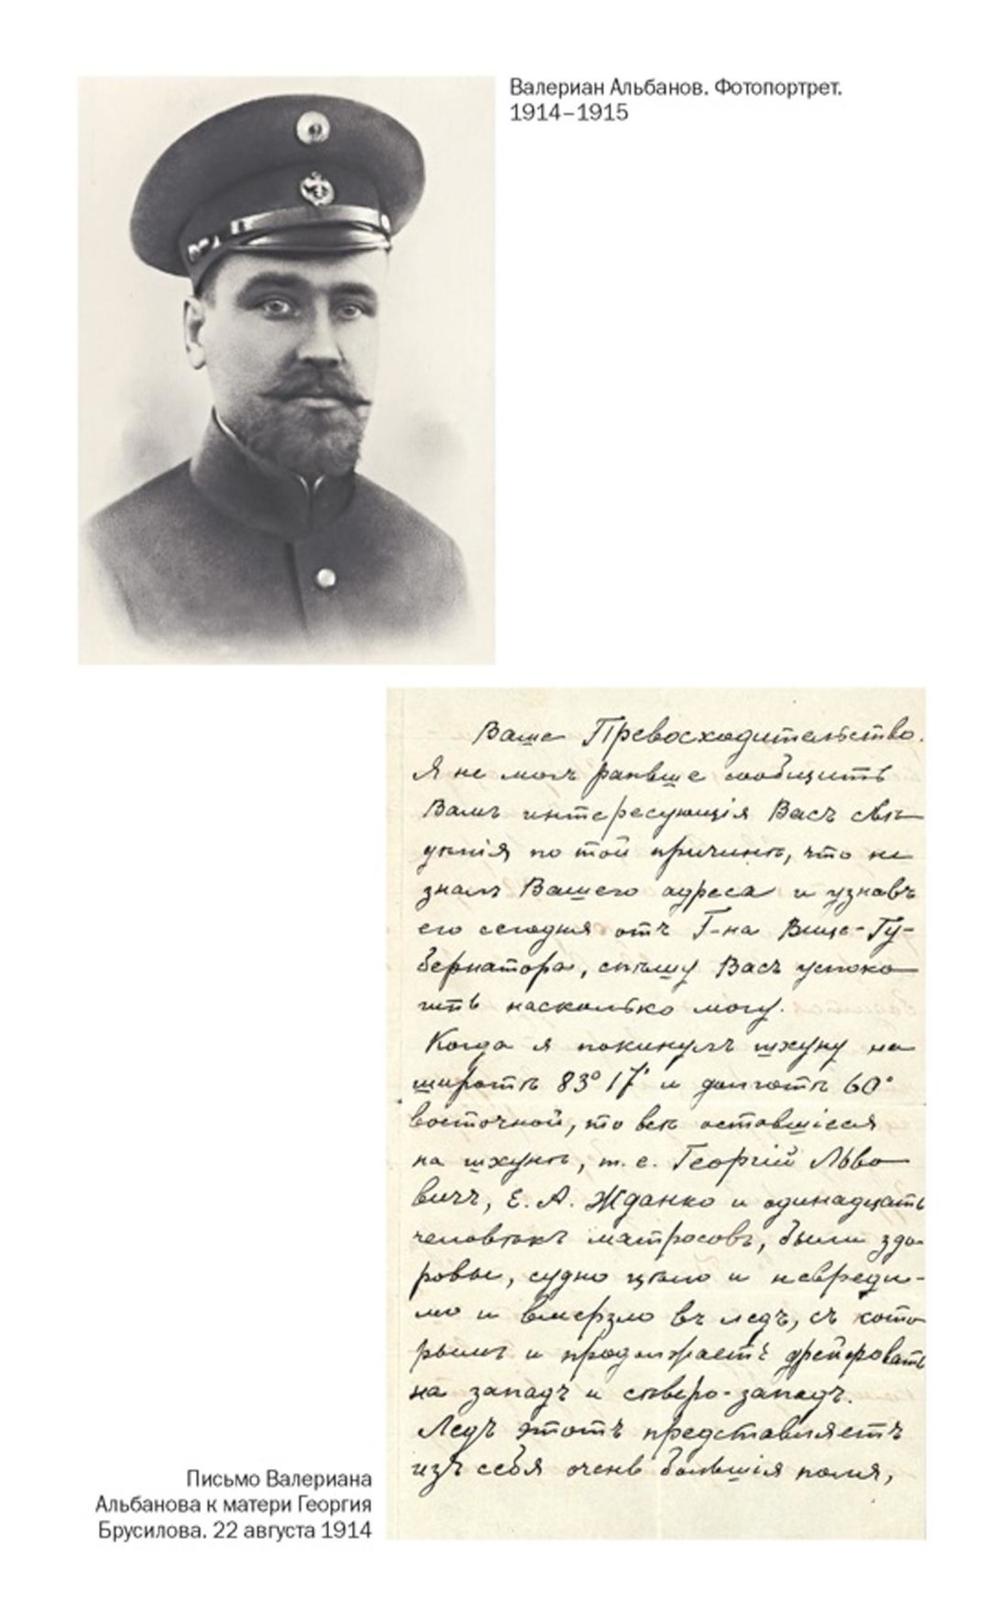 Валериан Альбанов. Фотопортрет.
1914–1915
Ваше Превосходительство.
Я не могъ раньше сообщить
Вамъ интересующія Васъ свѣ-
дѣнія по той причинѣ, что не
зналъ Вашего адреса и узнавъ
его сегодня отъ Г-на Вице-Гу-
бернатора, спѣшу Васъ успоко-
ить насколько могу.
Когда я покинулъ шхуну на
широтѣ 83° 17' и долготѣ 60°
восточной, то всѣ оставшіеся
на шхунѣ, т. е. Георгій Льво-
вичъ, Е. А. Жданко и одинадцать
человѣкъ матросовъ, были здо-
ровы, судно цѣло и невреди-
мо и вмерзло въ ледъ, съ кото-
рымъ и продолжаетъ дрейфовать
на западъ и сѣверо-западъ.
Ледъ этотъ представляетъ
изъ себя очень большія поля,
Письмо Валериана
Альбанова к матери Георгия
Брусилова. 22 августа 1914